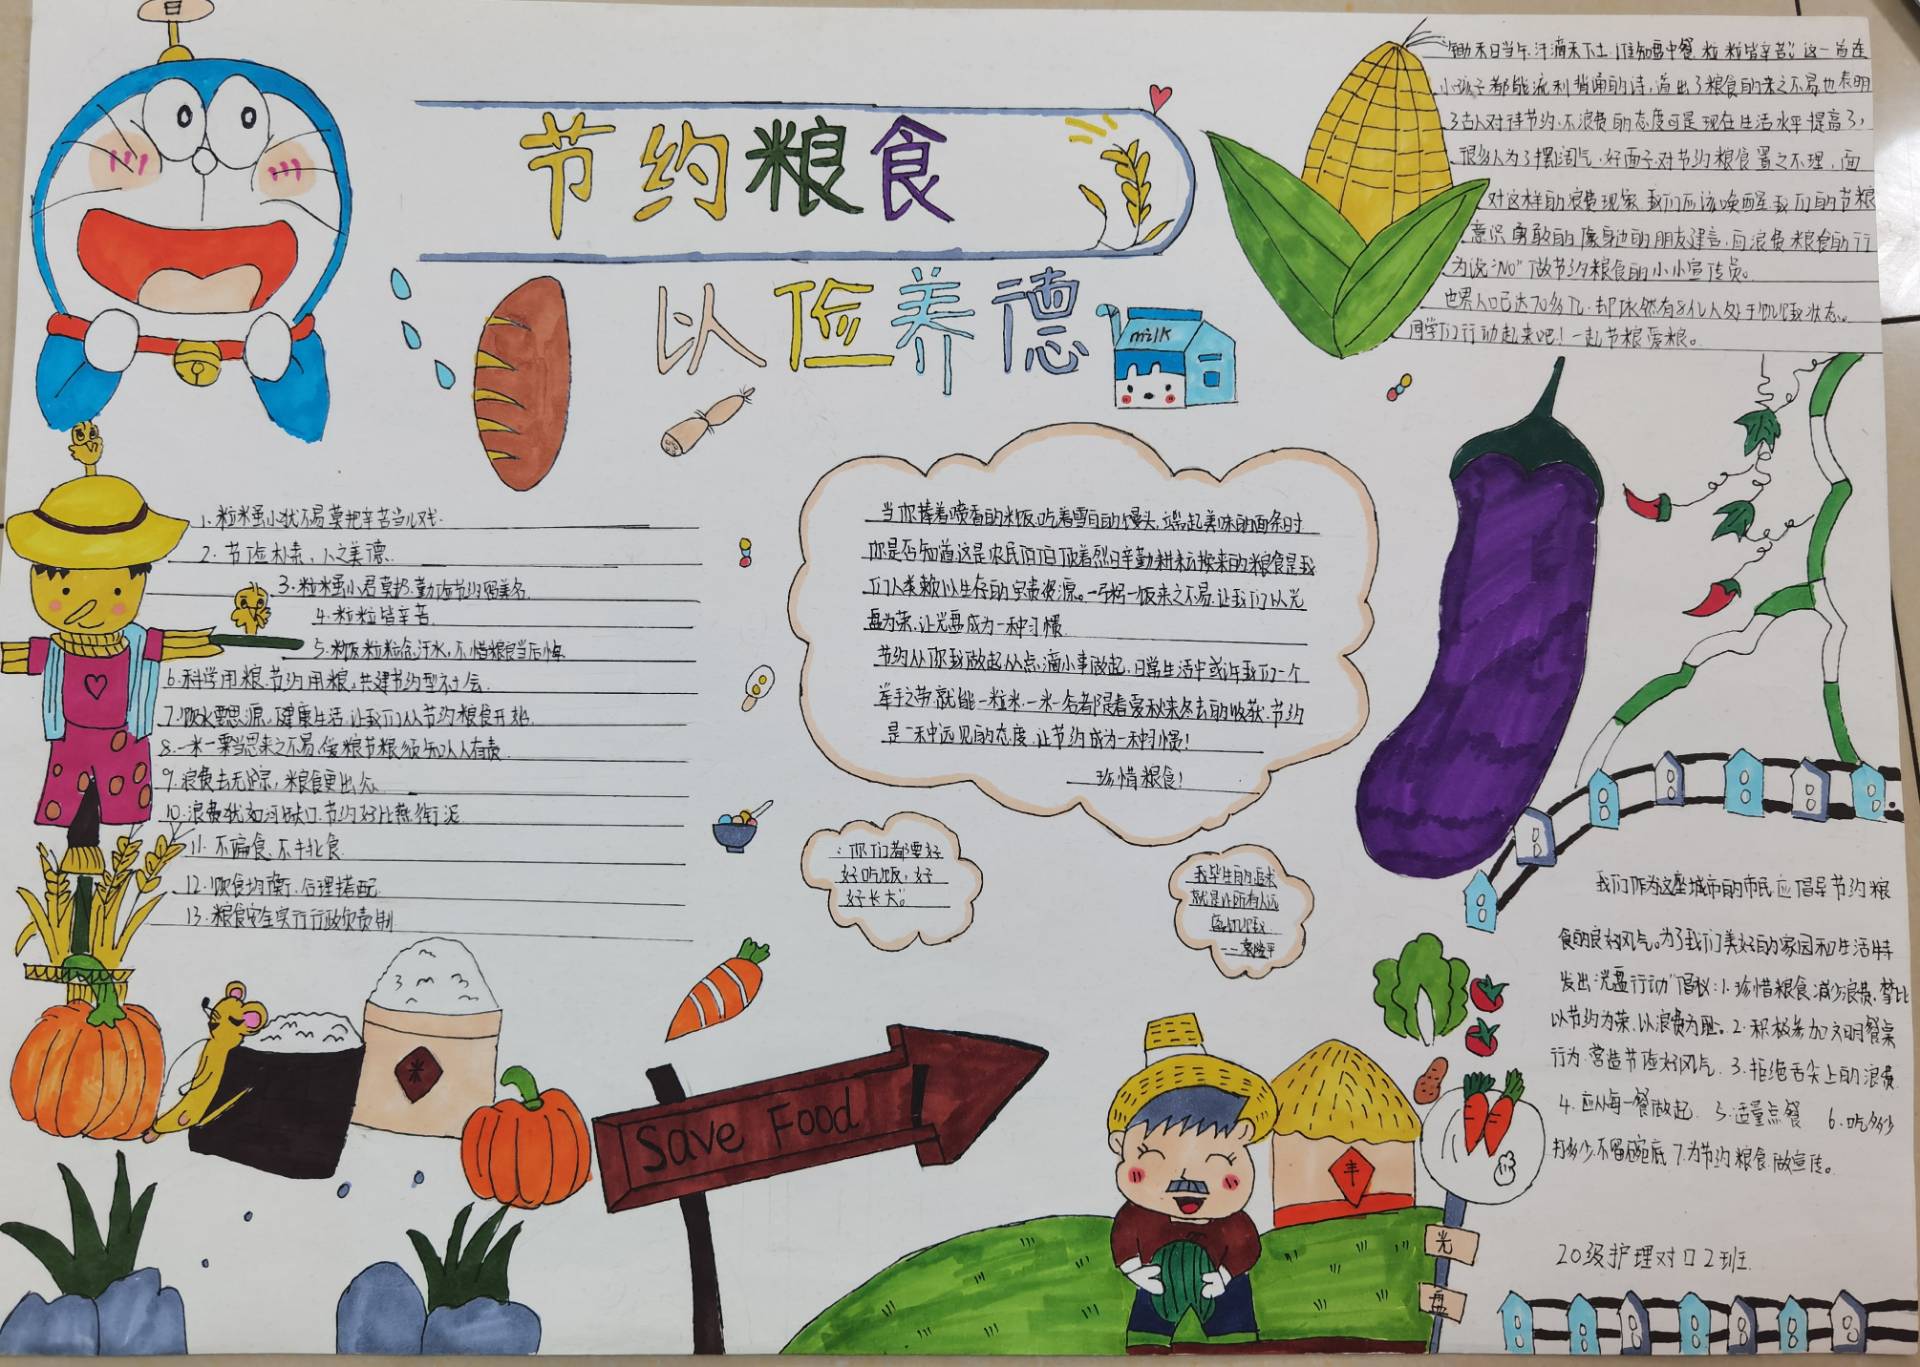 节约粮食
以俭养德
milk
"锄禾日当午,汗滴禾下土,谁知盘中餐,粒粒皆辛苦"这一首连
小孩子都能流利背诵的诗,道出了粮食的来之不易,也表明
了古人对待节约,不浪费的态度可是现在生活水平提高了,
很多人为了摆阔气,好面子对节约粮食置之不理,面
对这样的浪费现象,我们应该唤醒我们的节粮
意识,勇敢的像身边的朋友建言,向浪费粮食的行
为说"NO"做节约粮食的小小宣传员。
世界人口已达70多亿,却依然有8亿人处于饥饿状态。
同学们行动起来吧!一起节粮爱粮。
1.粒米虽小犹不易莫把辛苦当儿戏.
2.节俭朴素,人之美德.
3.粒米虽小君莫扔,勤俭节约留美名.
4.粒粒皆辛苦.
5.粉饭粒粒念汗水,不惜粮食当后悔.
6.科学用粮.节约用粮,共建节约型社会.
7.饮水要思源,健康生活,让我们从节约粮食开始.
8.一米一粟当思来之不易,爱粮节粮须知人人有责.
9.浪费去无踪,粮食更出众.
10.浪费犹如河缺口,节约好比燕衔泥
11.不偏食,不挑食.
12.饮食均衡,合理搭配
13.粮食安全实行行政负责制
当你捧着喷香的米饭,吃着雪白的馒头,端起美味的面条时
你是否知道,这是农民伯伯顶着烈日辛勤耕耘换来的粮食是我
们人类赖以生存的宝贵资源。一粥一饭来之不易,让我们以光
盘为荣,让光盘成为一种习惯.
节约从你我做起从点滴小事做起,日常生活中或许我们一个
举手之劳,就能一粒米.一米一谷者都跟着爱秋来冬去的收获.节约
是一种远见的态度,让节约成为一种习惯!
——珍惜粮食!
:你们都要好
好吃饭,好
好长大。
我毕生的追求
就是让所有人远
离饥饿
——袁隆平
我们作为这座城市的市民应倡导节约粮
食的良好风气。为了我们美好的家园和生活特
发出"光盘行动"倡议:1.珍惜粮食,减少浪费,攀比
以节约为荣,以浪费为耻。2.积极参加文明餐桌
行为.营造节俭好风气.3.拒绝舌尖上的浪费
4.应从每一餐做起.5.适量点餐 6.吃多少
打多少,不留碗底 7.为节约粮食做宣传。
20级护理对口2班
米
Save Food
丰
光
盘